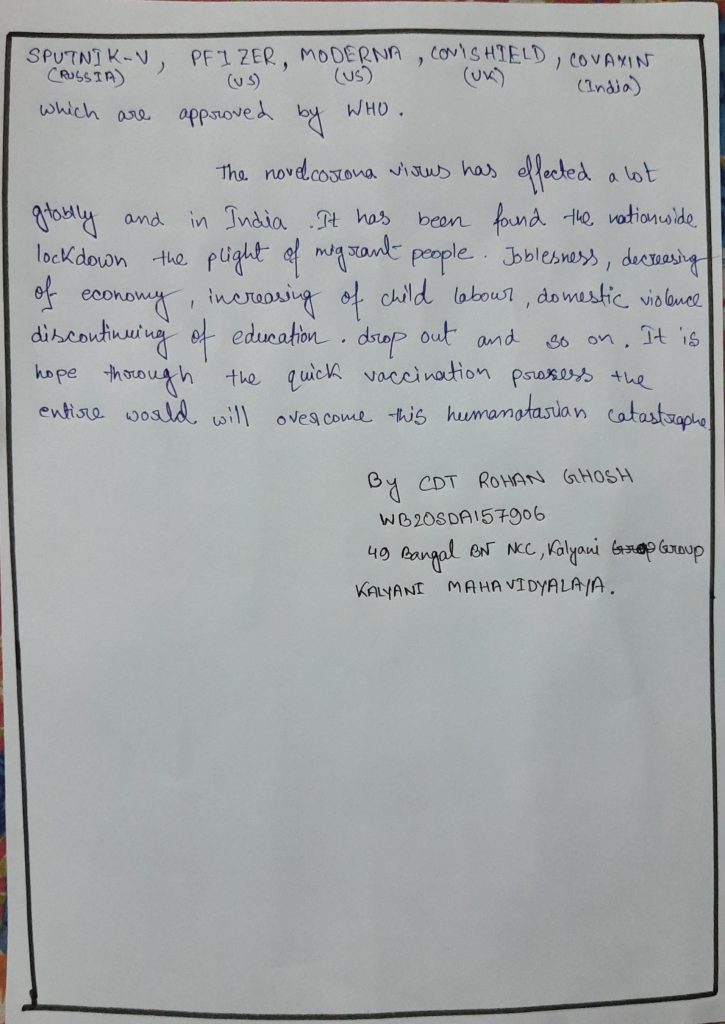 SPUTNIK-V, PFIZER, MODERNA, COVISHIELD, COVAXIN
(RUSSIA) (US) (US) (UK) (India)
which are approved by WHO.
The novelcorona virus has effected a lot
globlly and in India. It has been found the nationwide
lockdown the plight of migrant people. Joblesness, decreasing
of economy, increasing of child labour, domestic violence
discontinuing of education. drop out and so on. It is
hope through the quick vaccination prosess the
entire world will overcome this humanatarian catastrophe
By CDT ROHAN GHOSH
WB20SDA157906
49 Bangal BN NCC, Kalyani Group
KALYANI MAHAVIDYALAYA.